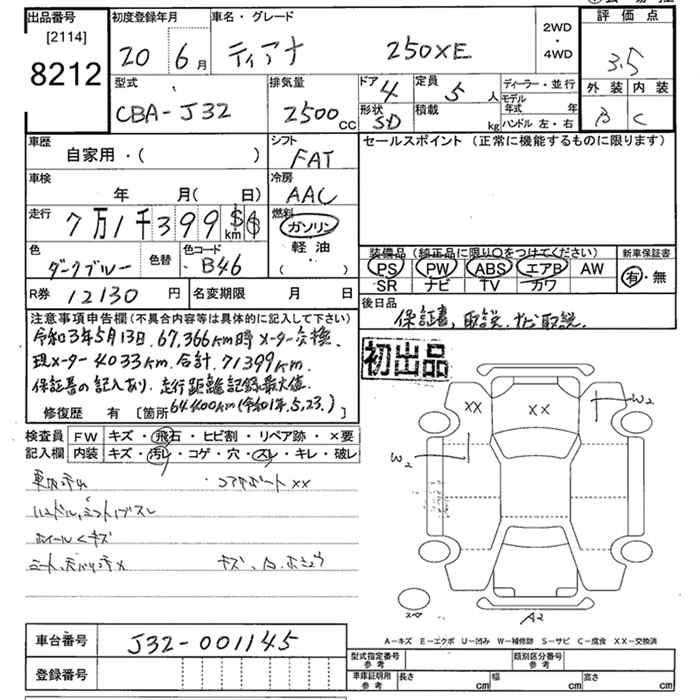 出品番号
[2114]
8212
初度登録年月
20 6月
車名・グレード
ティアナ 250XE
2WD
・
4WD
評価点
3.5
外装 内装
B C
型式
CBA-J32
排気量
2500cc
ドア 4
形状 SD
定員 5人
積載 kg
ディーラー・並行
モデル年式 年
ハンドル 左・右
車歴
自家用・( )
シフト
FAT
セールスポイント (正常に機能するものに限ります)
車検
年 月(日)
冷房
AAC
走行
7万1千399 km
燃料
ガソリン
軽油
・( )
色
ダークブルー
色替
色コード
B46
装備品 (純正品に限り○をつけてください)
PS PW ABS エアB AW
SR ナビ TV カワ
新車保証書
有・無
R券 12130円
名変期限 月 日
後日品
保証書, 取説, ナビ取説.
注意事項申告欄(不具合内容等は具体的に記入して下さい)
令和3年5月13日. 67,366km時メーター交換.
現メーター 4033km. 合計. 71399km.
保証書の記入あり. 走行距離記録最大値.
64400km(令和1年.5,23.)
修復歴 有 [箇所 ]
初出品
検査員
記入欄
FW キズ・飛石・ヒビ割・リペア跡・×要
内装 キズ・汚レ・コゲ・穴・スレ・キレ・破レ
・コアサポートXX
ホイールキズ
XX
XX
W2
W2
A2
車台番号
J32-001145
登録番号
A-キズ E-エクボ U-凹み W-補修跡 S-サビ C-腐食 XX-交換済
型式指定番号
参考
類別区分番号
参考
車庫証明用
参考
長さ cm
幅 cm
高さ cm